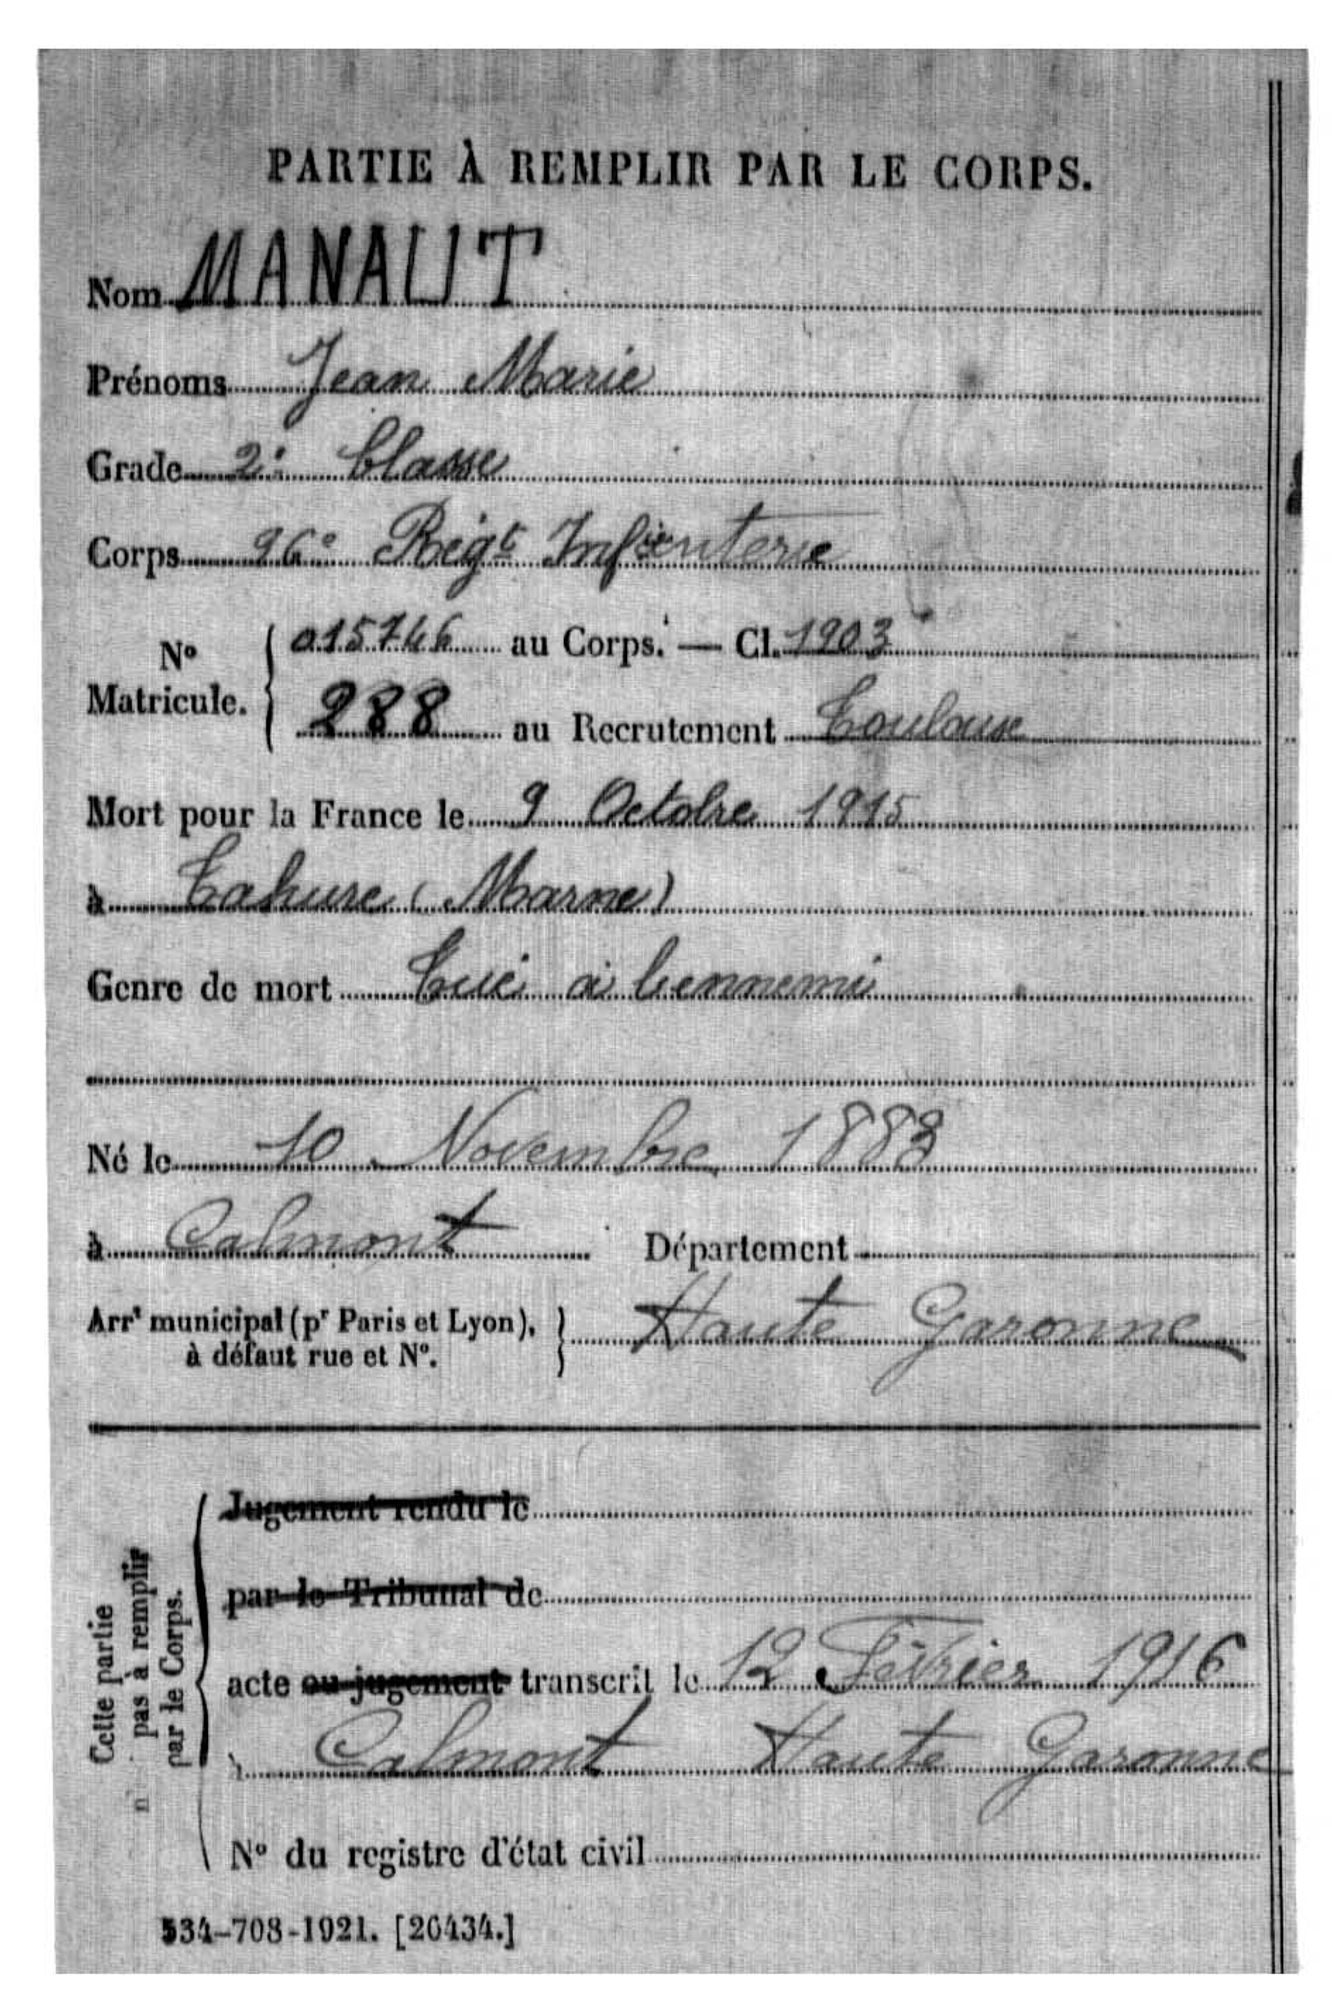 PARTIE À REMPLIR PAR LE CORPS.
Nom MANAUT
Prénoms Jean Marie
Grade 2e Classe
Corps 96e Régt Infanterie
No Matricule. { 015746 au Corps. — Cl. 1903
288 au Recrutement Toulouse
Mort pour la France le 9 Octobre 1915
à Tahure (Marne)
Genre de mort Tué à l'ennemi
Né le 10 Novembre 1883
à Calmont Département
Arrt municipal (pr Paris et Lyon), à défaut rue et No. } Haute Garonne
Cette partie n pas à remplir par le Corps.
Jugement rendu le
par le Tribunal de
acte ou jugement transcrit le 12 Février 1916
à Calmont Haute Garonne
No du registre d'état civil
534-708-1921. [26434.]